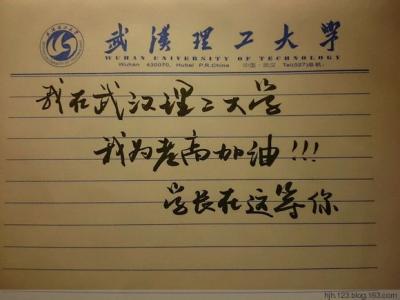 武漢理工大学
WUHAN UNIVERSITY OF TECHNOLOGY
Wuhan 430070, Hubei P.R.China 中国·武汉 Tel(027)总机:
我在武汉理工大学
我为老高加油!!!
学长在这等你
hjh.123.blog.163.com